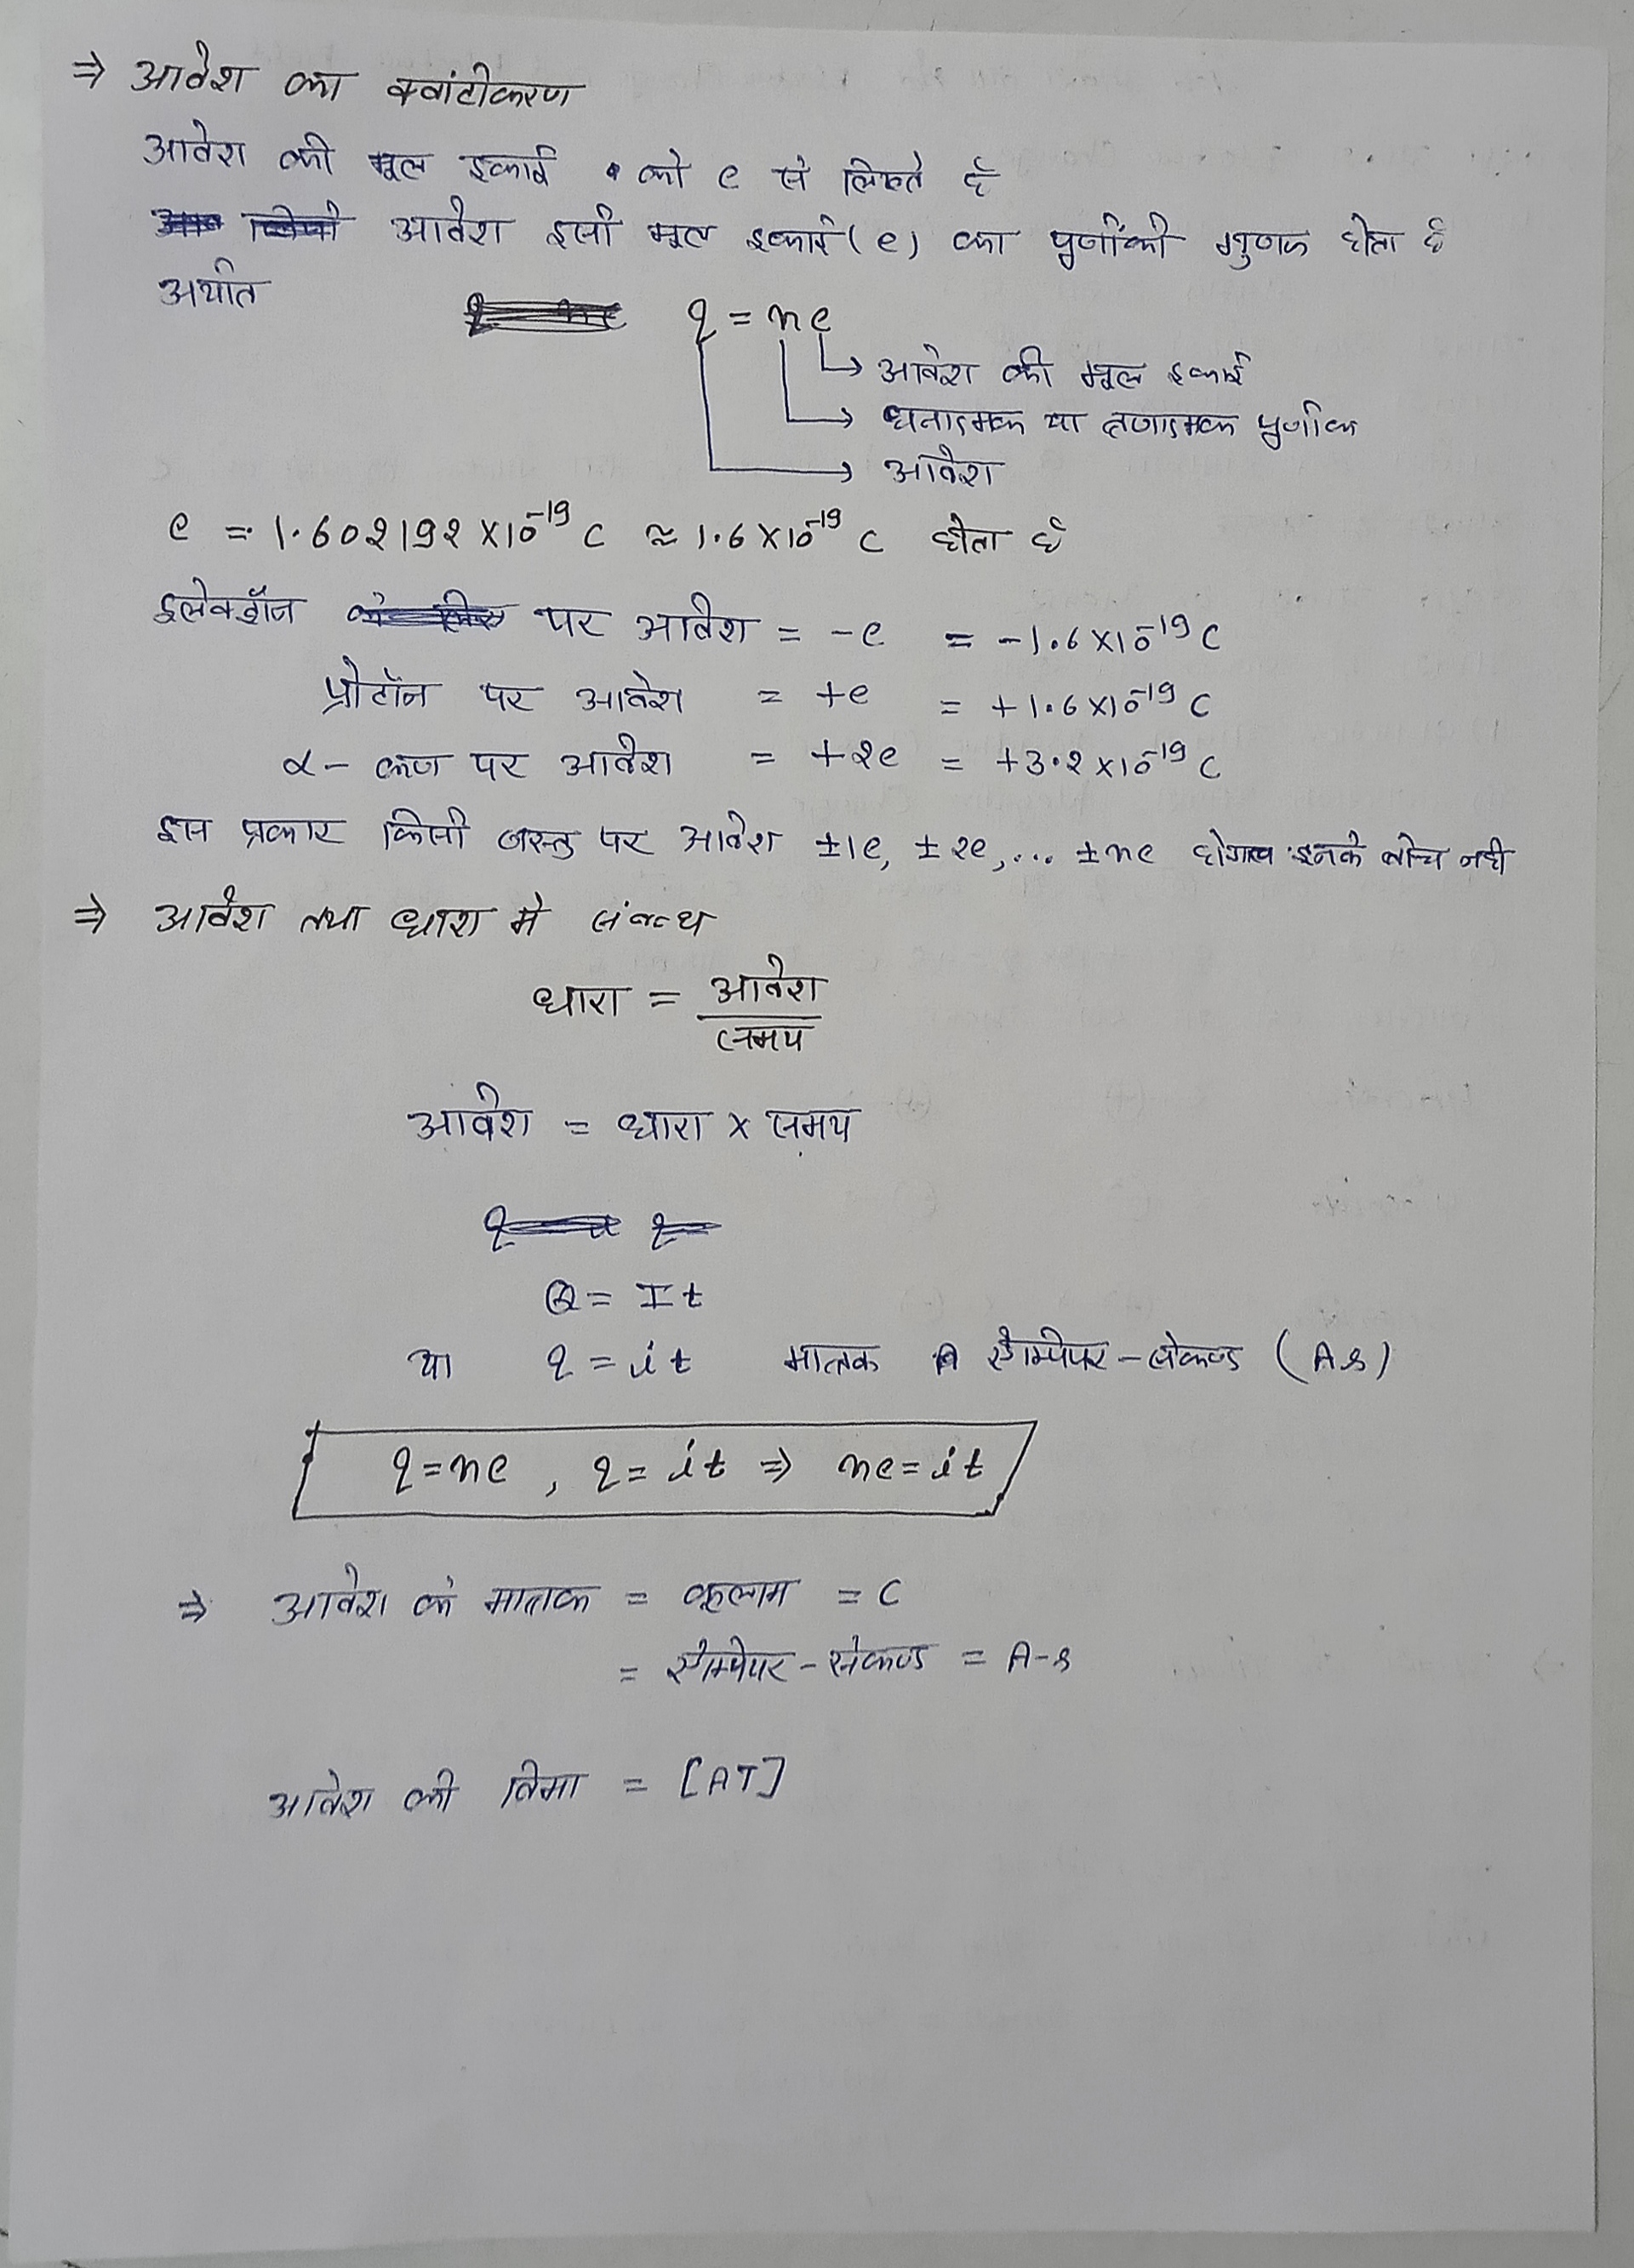 ⇒ आवेश का क्वांटीकरण
आवेश की मूल इकाई को e से लिखते है
आवेश इसी मूल इकाई (e) का पूर्णांकी गुणक होता है
अर्थात
q = ne
आवेश की मूल इकाई
धनात्मक या ऋणात्मक पूर्णांक
आवेश
e = 1.602192 × 10⁻¹⁹ C ≈ 1.6 × 10⁻¹⁹ C होता है
इलेक्ट्रॉन पर आवेश = -e = -1.6 × 10⁻¹⁹ C
प्रोटॉन पर आवेश = +e = +1.6 × 10⁻¹⁹ C
α - कण पर आवेश = +2e = +3.2 × 10⁻¹⁹ C
इस प्रकार किसी वस्तु पर आवेश ±1e, ±2e, ... ±ne इनके बीच नही
⇒ आवेश तथा धारा मे संबन्ध
धारा = आवेश / समय
आवेश = धारा × समय
Q = It
या q = it मात्रक ऐम्पियर - सेकण्ड (As)
q = ne , q = it ⇒ ne = it
⇒ आवेश के मात्रक = कूलाम = C
= ऐम्पियर - सेकण्ड = A-s
आवेश की विमा = [AT]